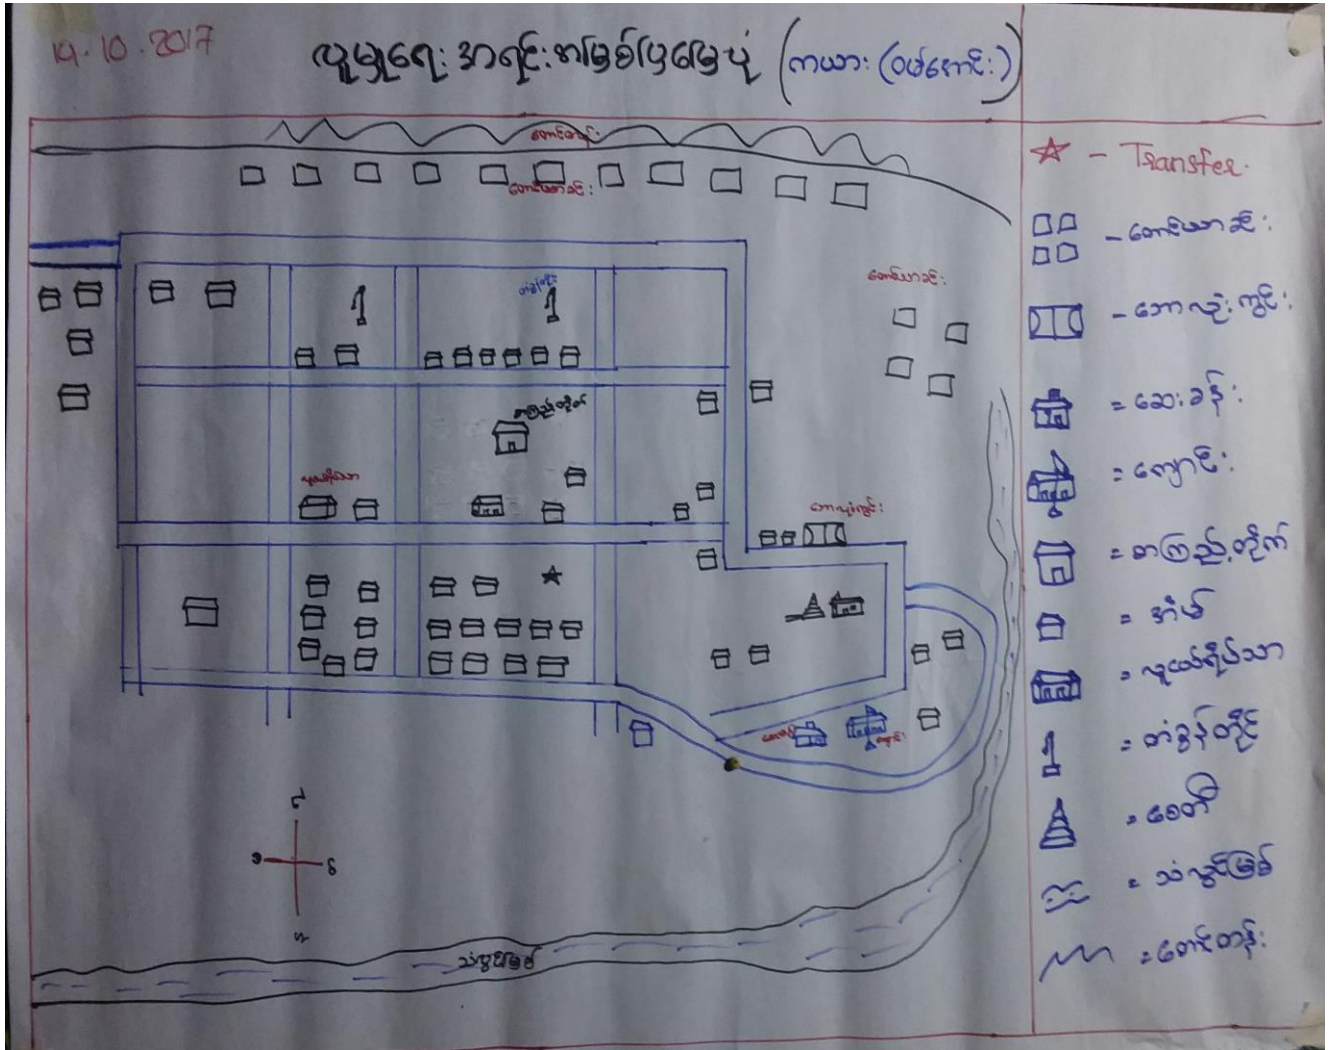 14.10.2017
လူမှုရေး အရင်းအမြစ်ပြမြေပုံ (ကယား (ဝမ်အောင်း)
တောင်တန်း
တောင်ယာခင်း
တောင်ယာခင်း
တံခွန်တိုင်
စာကြည့်တိုက်
လူငယ်ရိပ်သာ
ဘောလုံးကွင်း
ဆေးခန်း
ကျောင်း
သံလွင်မြစ်
Transfer.
- တောင်ယာခင်း
- ဘောလုံးကွင်း
= ဆေးခန်း
= ကျောင်း
= စာကြည့်တိုက်
= အိမ်
= လူငယ်ရိပ်သာ
= တံခွန်တိုင်
= စေတီ
= သံလွင်မြစ်
= တောင်တန်း